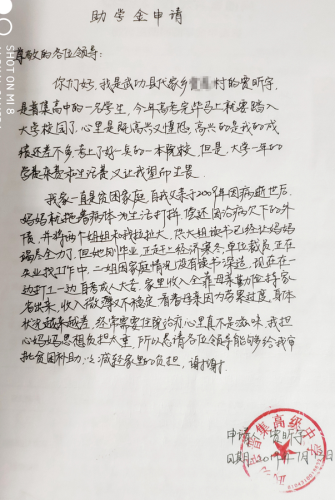 助学金申请
尊敬的各位领导:
你们好,我是武功县代家乡村的贾昕宇,
是普集高中的一名学生,今年高考完毕马上就要踏入
大学校园了,心里是既高兴又惶恐,高兴的是我的成
绩还差不多,考上了好一点的一本院校,但是,大学一年的
学费杂费和生活费又让我望而生畏
我家一直是贫困家庭,自我父亲于2009年因病逝世后,
妈妈就拖着病体为生活打拼,偿还因治病欠下的外
债,并将两个姐姐和我拉扯大,供大姐读书已经让妈妈
竭尽全力,但她刚毕业,正赶上经济寒冬,单位裁员,正在
失业找工作中,二姐因家庭情况没有读书深造,现在在一
边打工一边自考成人大专,家里收入全靠母亲勤俭持家
省出来,收入微薄又不稳定,看着母亲因为劳累过度,身体
状况越来越差,经常需要住院治疗心里真不是滋味,我担
心妈妈思想负担太重,所以恳请各位领导能够给我审
批贫困补助,以减轻家里的负担,谢谢!
申请人:贾昕宇
日期:2019年7月日
普集高级中学
SHOT ON MI 8